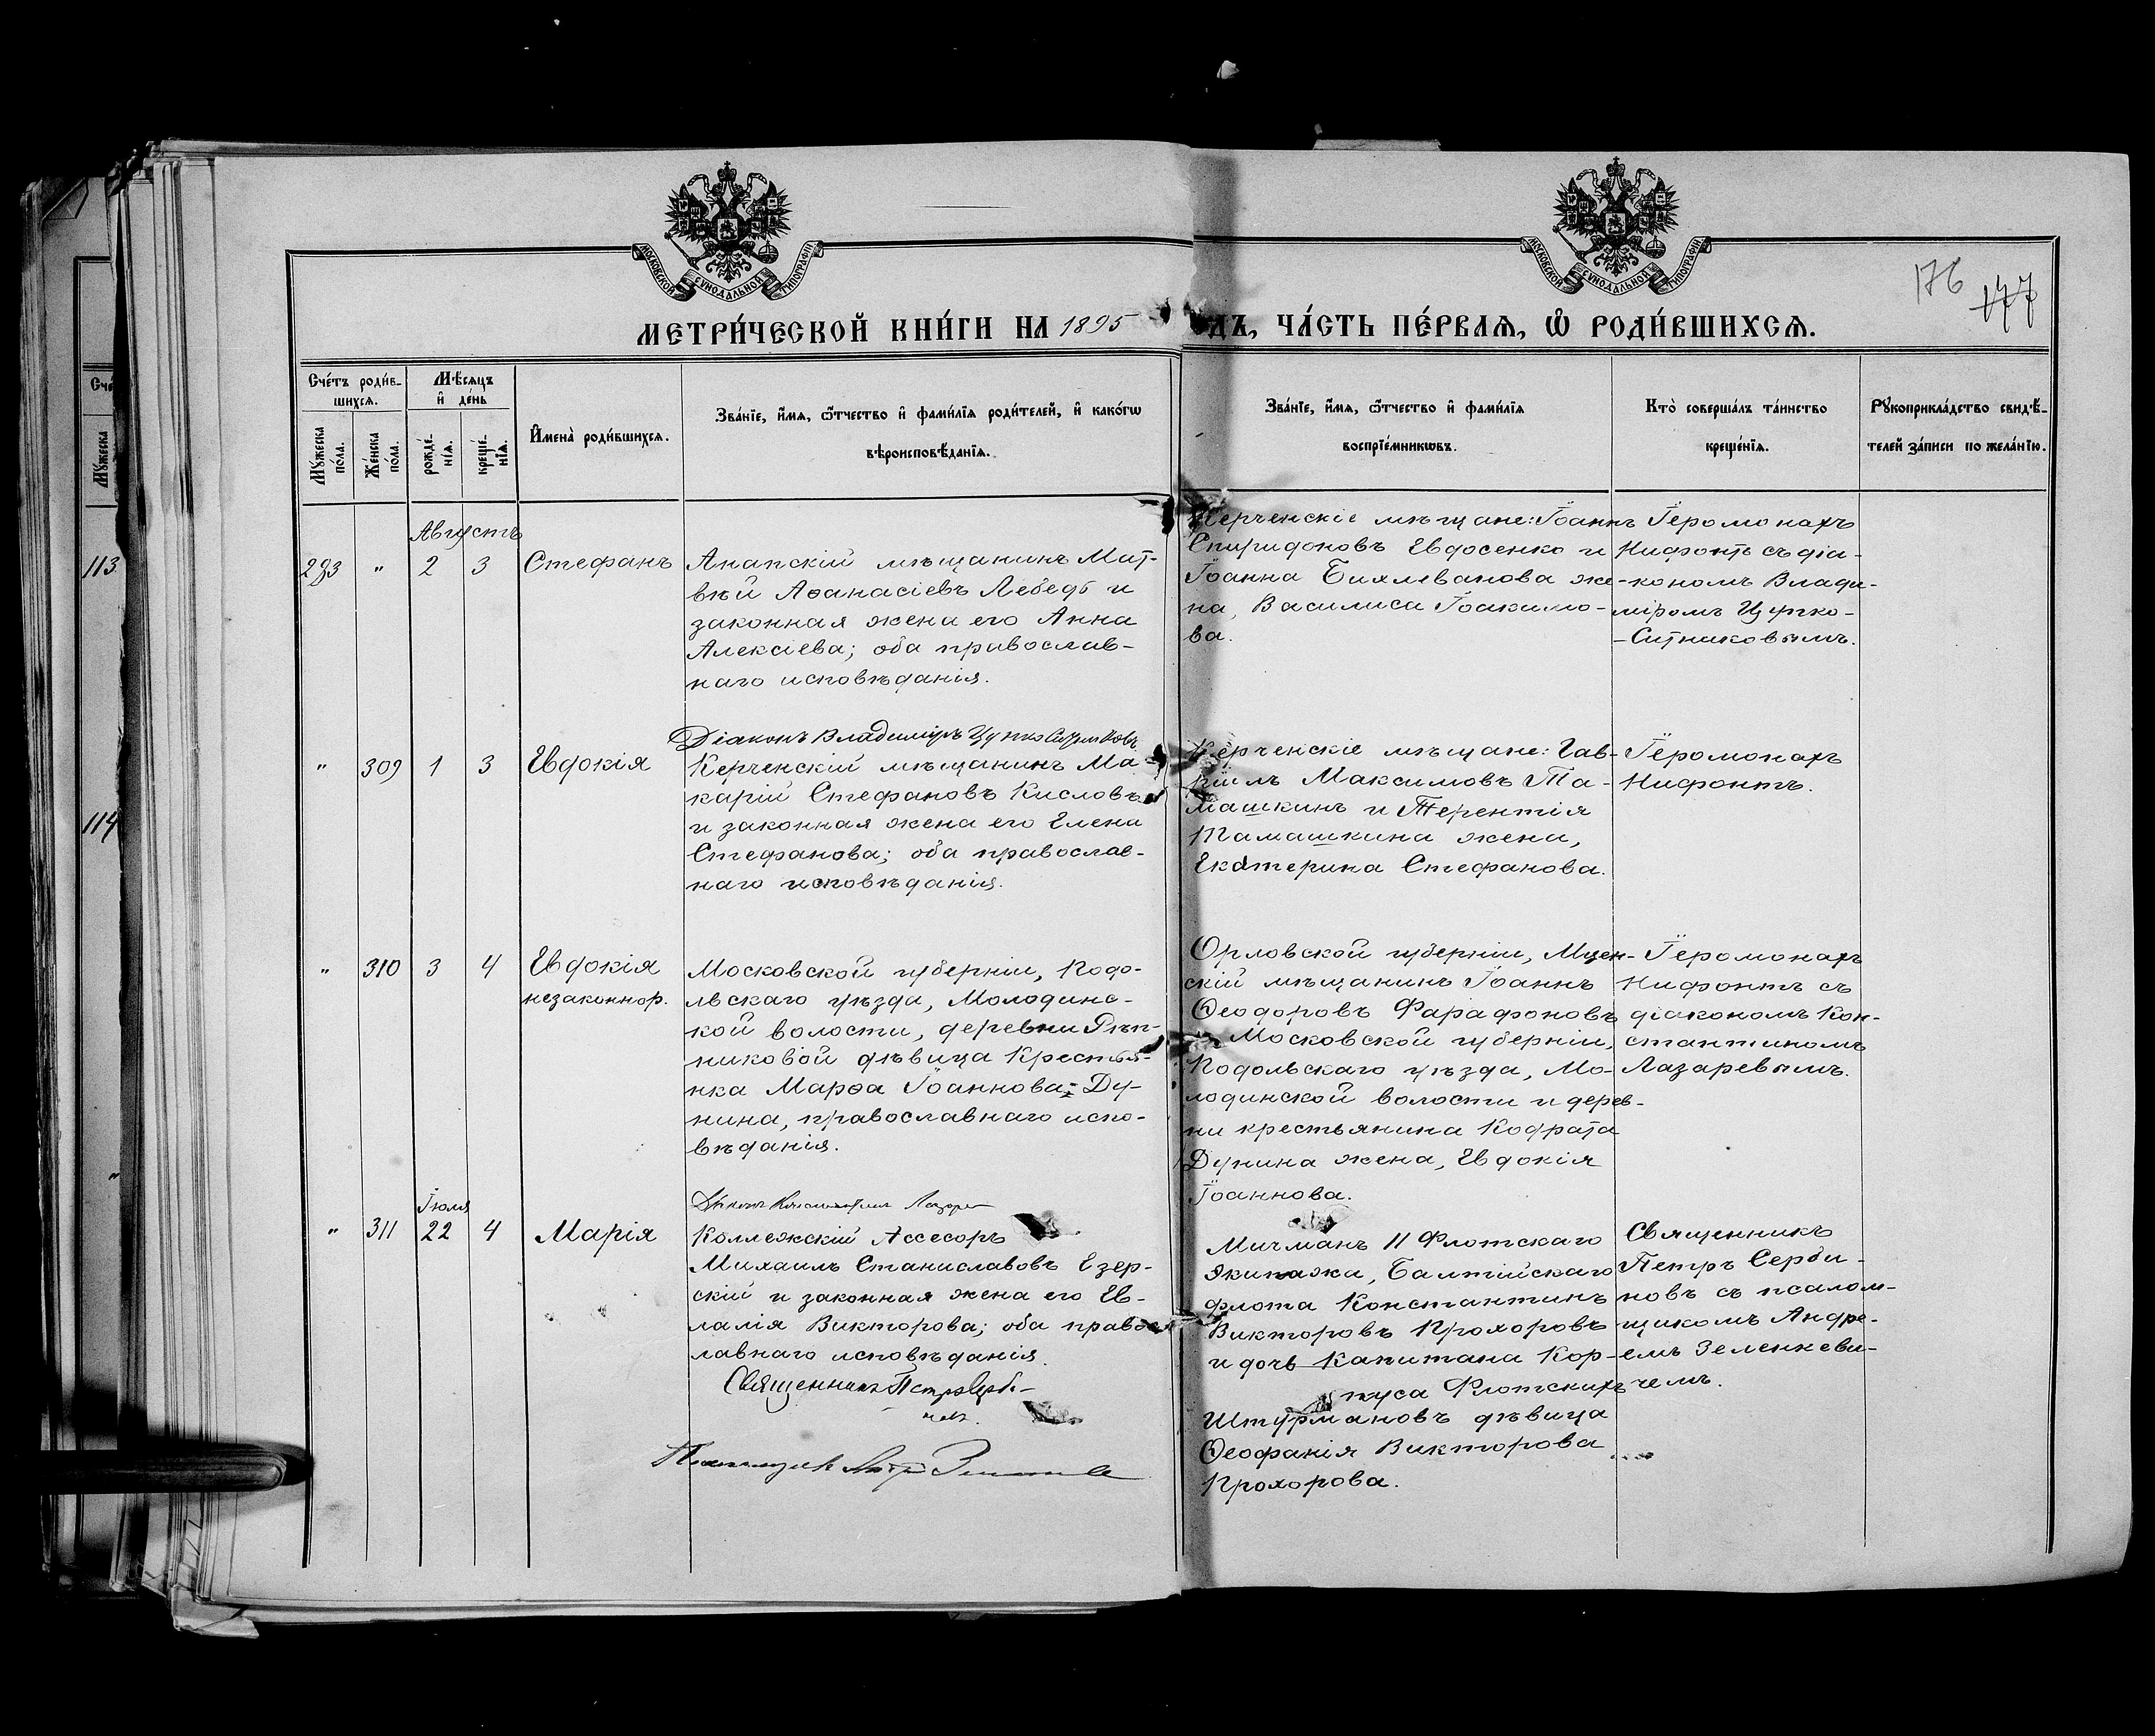 МОСКОВСКОЙ СѴНОДАЛЬНОЙ ТИПОГРАФІИ
МОСКОВСКОЙ СѴНОДАЛЬНОЙ ТИПОГРАФІИ
176
177
МЕТРИ́ЧЕСКОЙ КНИ́ГИ НА 1895
ДЪ, ЧА́СТЬ ПЕ́РВАЯ, Ѿ РОДИ́ВШИХСЯ.
Сче́тъ роди́в-
шихся.
Мѣ́сяцъ
и҆ де́нь
Му́жеска по́ла.
Же́нска по́ла.
рожде́-
нїя.
креще́-
нїя.
И҆мена̀ роди́вшихся.
Зва́нїе, и҆́мя, ѻ҆́тчество и҆ фами́лїя роди́телей, и҆ како́гѡ
вѣроисповѣ́данїя.
Зва́нїе, и҆́мя, ѻ҆́тчество и҆ фами́лїя
воспрїе́мникѡвъ.
Кто̀ соверша́лъ та́инство
креще́нїя.
Рꙋкоприкла́дство свидѣ́-
телей за́писи по жела́нїю.
113
114
Августъ
293 " 2 3 Стефанъ
Анапскій мѣщанинъ Мат-
вѣй Аѳанасіевъ Лебедь и
законная жена его Анна
Алексіева; оба православ-
наго исповѣданія.
Діаконъ Владиміръ Цупко Ситниковъ
Керченскіе мѣщане: Іоаннъ
Спиридоновъ Евдосенко и
Іоанна Бихлеванова же-
на, Василиса Іоакимо-
ва.
Іеромонахъ
Нифонтъ съ діа-
кономъ Влади-
міромъ Цупко-
-Ситниковымъ.
" 309 1 3 Евдокія
Керченскій мѣщанинъ Ма-
карій Стефановъ Кисловъ
и законная жена его Елена
Стефанова; оба православ-
наго исповѣданія.
Керченскіе мѣщане: Гав-
ріилъ Максимовъ Та-
машкинъ и Терентія
Тамашкина жена,
Екатерина Стефанова.
Іеромонахъ
Нифонтъ.
" 310 3 4 Евдокія
незаконнор.
Московской губерніи, Подо-
льскаго уѣзда, Молодинс-
кой волости, деревни Рѣп-
никовой дѣвица Крестья-
нка Марѳа Іоаннова Ду-
нина, православнаго испо-
вѣданія.
Діаконъ Константинъ Лазарев
Орловской губерніи, Мцен-
скій мѣщанинъ Іоаннъ
Ѳеодоровъ Фарафоновъ
Московской губерніи,
Подольскаго уѣзда, Мо-
лодинской волости и дерев-
ни крестьянина Кодрата
Дунина жена, Евдокія
Іоаннова.
Іеромонахъ
Нифонтъ съ
діакономъ Кон-
стантиномъ
Лазаревымъ.
Іюля
" 311 22 4 Марія
Коллежскій Ассесоръ
Михаилъ Станиславовъ Езер-
скій и законная жена его Ев-
лалія Викторова; оба правос-
лавнаго исповѣданія.
Священникъ Петръ Серби-
новъ.
Мичманъ 11 Флотскаго
Экипажа, Балтійскаго
флота Константинъ
Викторовъ Прохоровъ
и дочь Капитана Кор-
пуса Флотскихъ
Штурмановъ дѣвица
Ѳеофанія Викторова
Прохорова.
Священникъ
Петръ Серби-
новъ съ псалом-
щикомъ Андре-
емъ Зеленкеви-
чемъ.